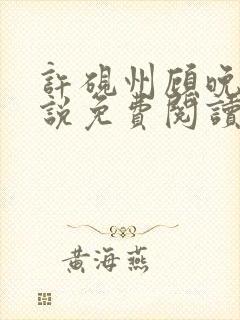 許硯州顧晚
說免費閱讀
黃海燕